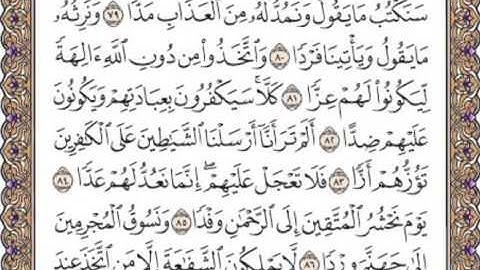 سَنَكْتُبُ مَا يَقُولُ وَنَمُدُّ لَهُۥ مِنَ ٱلْعَذَابِ مَدًّا ٧٩ وَنَرِثُهُۥ
مَا يَقُولُ وَيَأْتِينَا فَرْدًا ٨٠ وَٱتَّخَذُوا۟ مِن دُونِ ٱللَّهِ ءَالِهَةً
لِّيَكُونُوا۟ لَهُمْ عِزًّا ٨١ كَلَّا ۚ سَيَكْفُرُونَ بِعِبَادَتِهِمْ وَيَكُونُونَ
عَلَيْهِمْ ضِدًّا ٨٢ أَلَمْ تَرَ أَنَّآ أَرْسَلْنَا ٱلشَّيَٰطِينَ عَلَى ٱلْكَٰفِرِينَ
تَؤُزُّهُمْ أَزًّا ٨٣ فَلَا تَعْجَلْ عَلَيْهِمْ ۖ إِنَّمَا نَعُدُّ لَهُمْ عَدًّا ٨٤
يَوْمَ نَحْشُرُ ٱلْمُتَّقِينَ إِلَى ٱلرَّحْمَٰنِ وَفْدًا ٨٥ وَنَسُوقُ ٱلْمُجْرِمِينَ
إِلَىٰ جَهَنَّمَ وِرْدًا ٨٦ لَّا يَمْلِكُونَ ٱلشَّفَٰعَةَ إِلَّا مَنِ ٱتَّخَذَ عِندَ